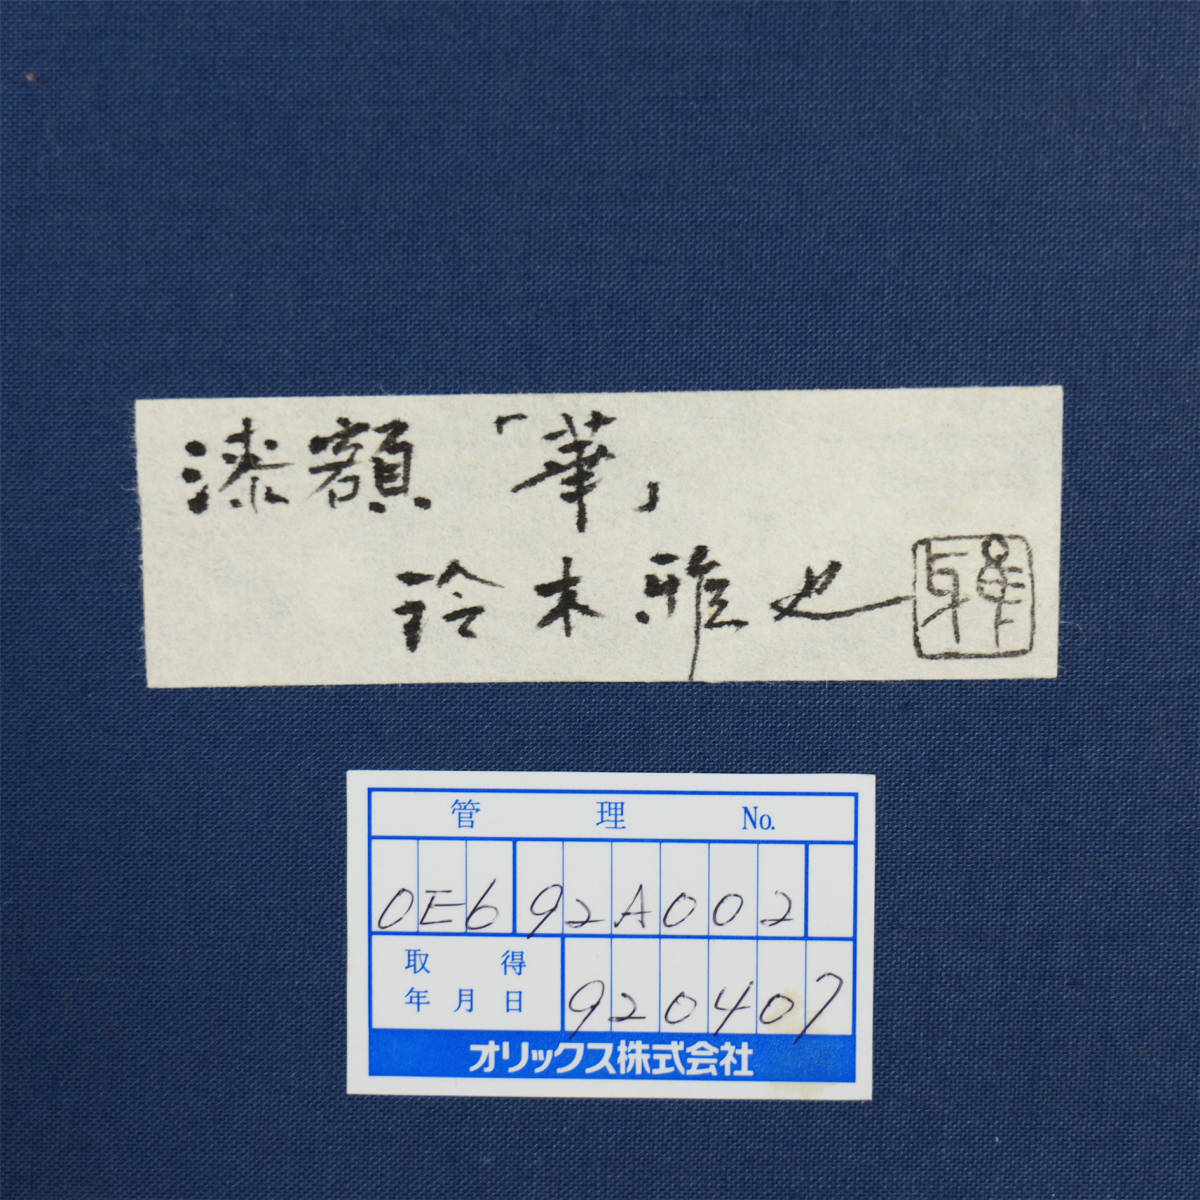 漆額「華」
鈴木雅也 雅
管理No.
0E692A002
取得
年月日
920407
オリックス株式会社